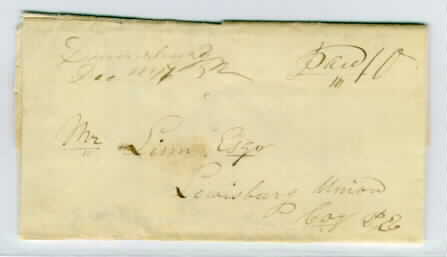 Paid 10
Dec
Mr Linn Esqr
Lewisburg Union
Coy Pa